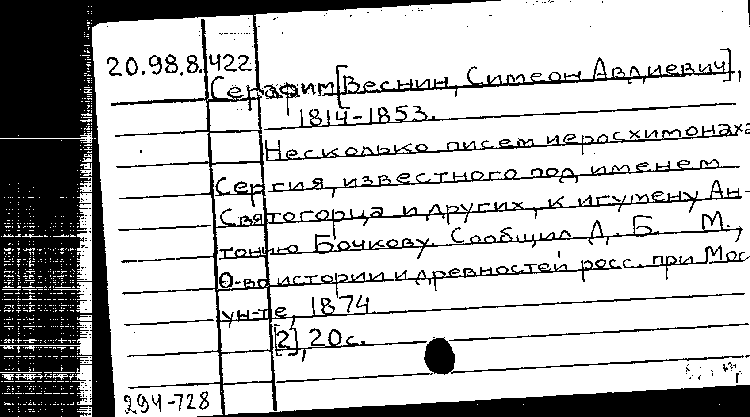 20.98.8.422
Серафим [Веснин, Симеон Авдиевич],
1814-1853.
Несколько писем иеросхимонаха
Сергия, известного под именем
Святогорца и других, к игумену Ан-
тонию Бочкову. Сообщил Д. Б. М.,
О-во истории и древностей росс. при Мос
ун-те, 1874
[2], 20с.
294-728